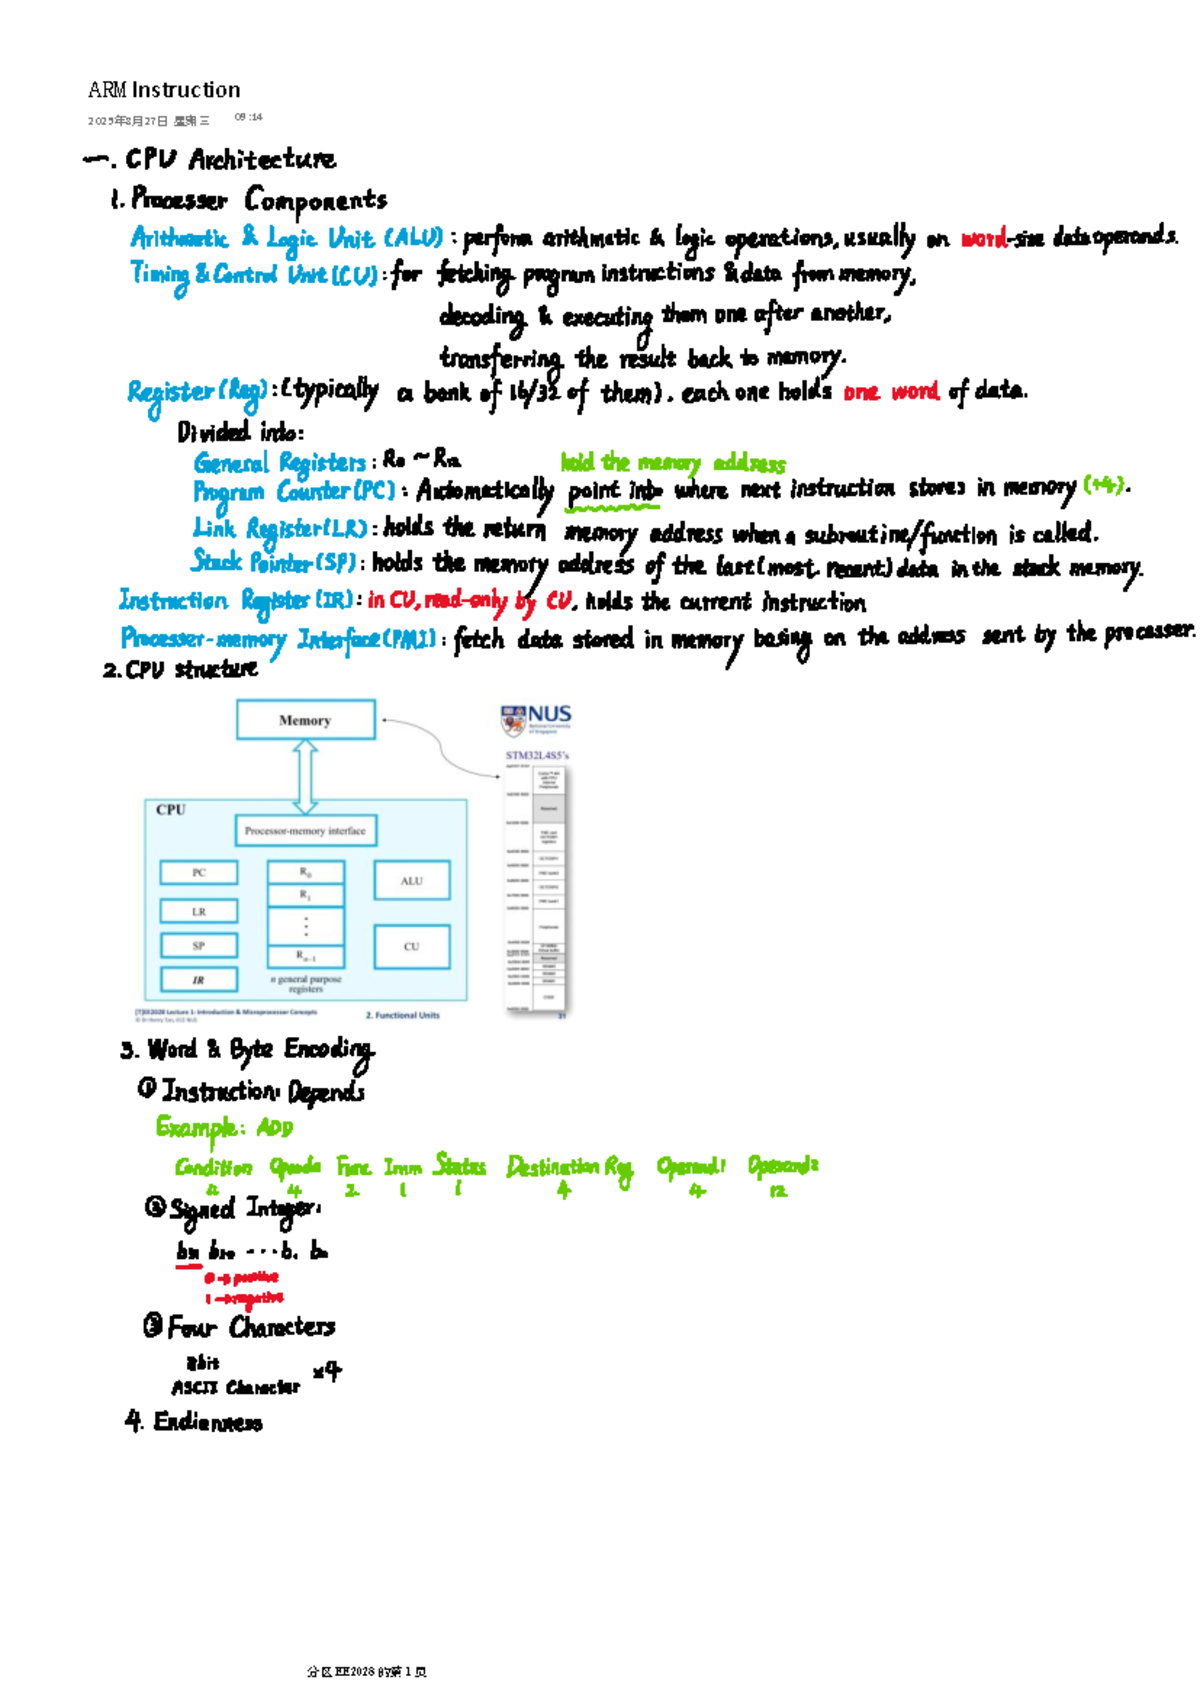 ARM Instruction
2025年8月27日 星期三 09:14
一. CPU Architecture
1. Processer Components
Arithmetic & Logic Unit (ALU) : perform arithmetic & logic operations, usually on word-size data operands.
Timing & Control Unit (CU) : for fetching program instructions & data from memory,
decoding & executing them one after another,
transferring the result back to memory.
Register (Reg) : (typically a bank of 16/32 of them). each one holds one word of data.
Divided into:
General Registers : R0 ~ R12
hold the memory address
Program Counter (PC) : Automatically point into where next instruction stores in memory (+4).
Link Register (LR) : holds the return memory address when a subroutine/function is called.
Stack Pointer (SP) : holds the memory address of the last (most recent) data in the stack memory.
Instruction Register (IR) : in CU, read-only by CU, holds the current instruction
Processer-memory Interface (PMI) : fetch data stored in memory basing on the address sent by the processer.
2. CPU structure
Memory
NUS
National University of Singapore
STM32L4S5's
CPU
Processor-memory interface
PC
R0
ALU
R1
LR
SP
CU
Rn-1
IR
n general purpose registers
[T]EE2028 Lecture 1: Introduction & Microprocessor Concepts
© Dr Henry Tan, ECE NUS
2. Functional Units
31
3. Word & Byte Encoding
① Instruction: Depends
Example: ADD
Condition Opcode Func Imm Status Destination Reg Operand1 Operand2
4 4 2 1 1 4 4 12
② Signed Integer:
b31 b30 ··· b1 b0
0 → positive
1 → negative
③ Four Characters
8bit
ASCII Character ×4
4. Endienness
分区 EE2028 的第 1 页